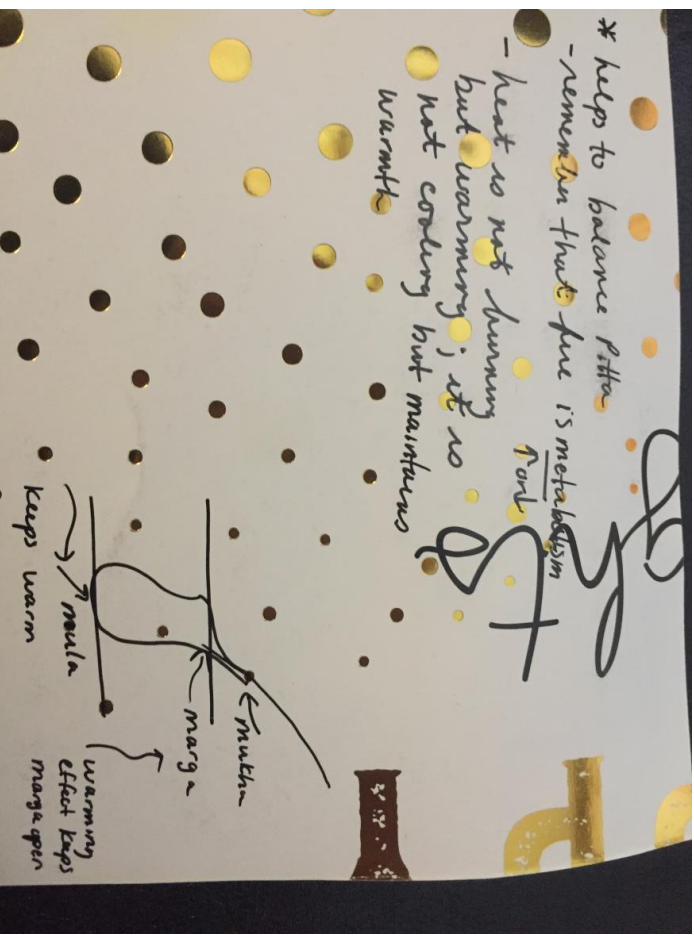 * helps to balance Pitta
- remember that fire is metabolism
- heat is not burning
but warming; it is
not cooling but maintains
warmth
mukha
marga
moula
keeps warm
warming
effect keeps
marga open